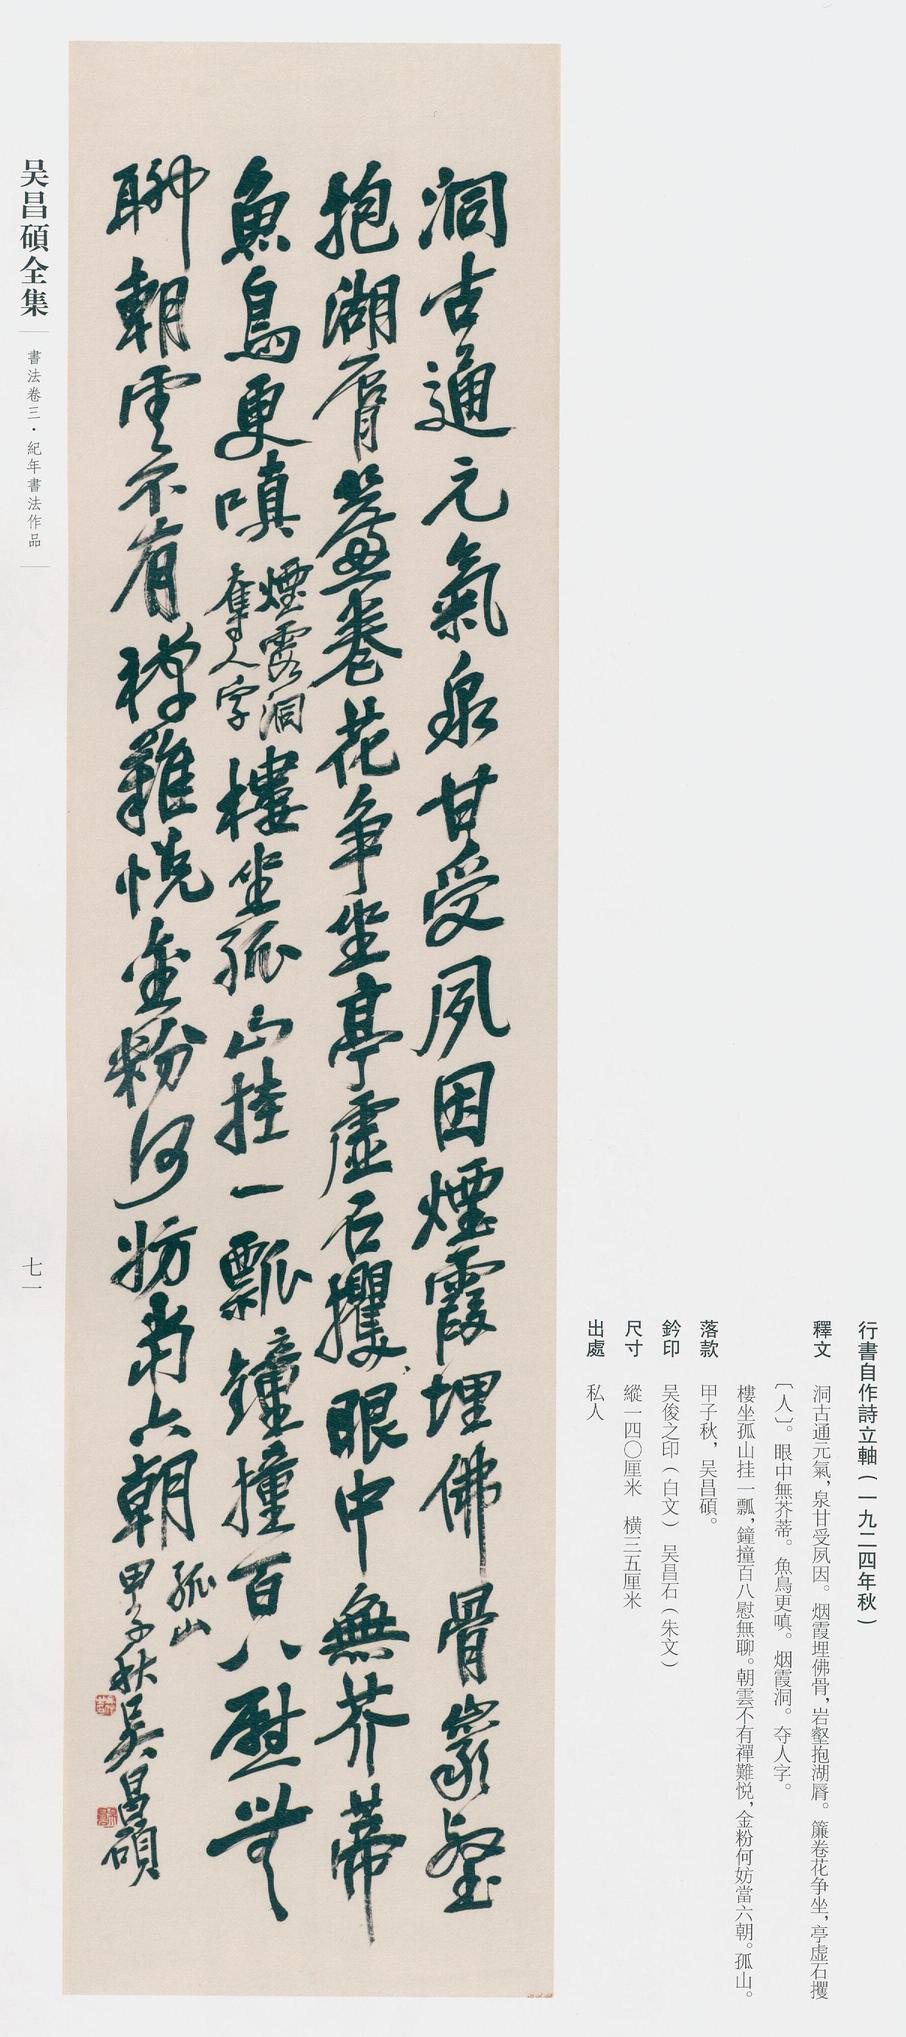 洞古通元氣泉甘受夙因煙霞埋佛骨岩壑
抱湖脣簾卷花争坐亭虛石攫眼中無芥蒂
魚鳥更嗔
煙霞洞
奪人字
樓坐孤山挂一瓢鐘撞百八慰無
聊朝雲不有禪難悦金粉何妨當六朝
孤山
甲子秋吴昌碩
行書自作詩立軸（一九二四年秋）
釋文 洞古通元氣，泉甘受夙因。烟霞埋佛骨，岩壑抱湖脣。簾卷花争坐，亭虚石攫
〔人〕。眼中無芥蒂。魚鳥更嗔。烟霞洞。夺人字。
樓坐孤山挂一瓢，鐘撞百八慰無聊。朝雲不有禪難悦，金粉何妨當六朝。孤山。
落款 甲子秋，吴昌碩。
鈐印 吴俊之印（白文） 吴昌石（朱文）
尺寸 縱一四〇厘米 橫三五厘米
出處 私人
吴昌碩全集
書法卷三·紀年書法作品
七一